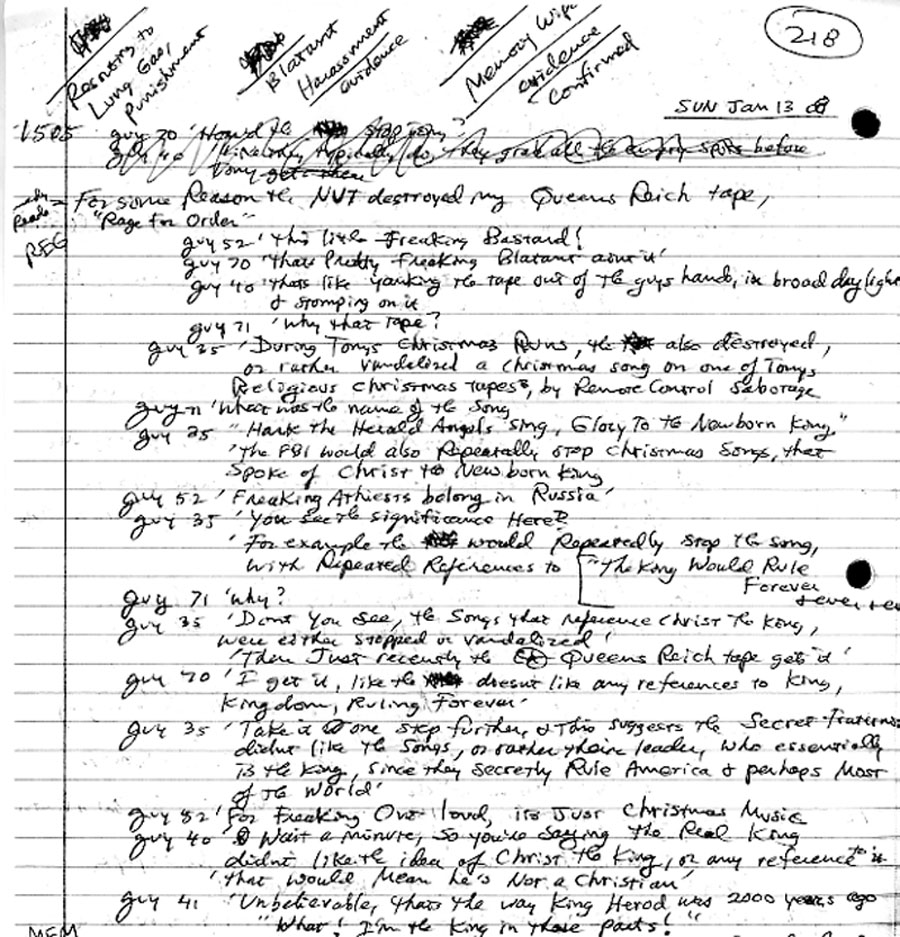 Resorts to
Lung Gas,
punishment
Blatant
Harassment
evidence
Memory Wipe
evidence
confirmed
218
SUN Jan 13 08
1505 guy 70 'How'd the stop Tony?
guy 40 typically do, they grab all the spots before
Tony gets there
For some Reason the NUT destroyed my Queens Reich tape,
"Rage For Order"
guy 52 'this little Freaking Bastard!
guy 70 'thats Pretty Freaking Blatant aint it'
guy 40 'thats like yanking the tape out of the guys hands, in broad daylight
& stomping on it
guy 71 'Why that tape?
guy 35 'During Tonys Christmas Runs, the also destroyed,
or rather vandalized a Christmas song on one of Tonys
Religious Christmas tapes, by Remote Control Sabotage
guy 71 'What was the name of the Song
guy 35 "Hark the Herald Angels Sing, Glory To the Newborn King,"
'The FBI would also Repeatally stop Christmas Songs, that
Spoke of Christ the Newborn King
guy 52 'Freaking Athiests belong in Russia'
guy 35 'You see the significance Here?
'For example the would Repeatedly stop the song,
with Repeated References to "The King Would Rule
Forever
& ever
guy 71 'Why?
guy 35 'Dont You See, the Songs that reference Christ the King,
were either stopped or vandalized'
'Then Just recently the Queens Reich tape gets it'
guy 70 'I get it, like the doesnt like any references to King,
Kingdom, Ruling Forever'
guy 35 'Take it one step further, & This suggests the Secret
didnt like the Songs, or rather their leader, who essentially
is the King, since they secretly Rule America & perhaps Most
of the World'
guy 52 'For Freaking Out loud, its Just Christmas Music
guy 40 Wait a Minute, so you're saying the Real King
didnt like the idea of Christ the King, or any reference to it
'that would Mean he's Not a Christian'
guy 41 'Unbelievable, thats the way King Herod was 2000 years ago
"What! I'm the King in these parts!"
MEM